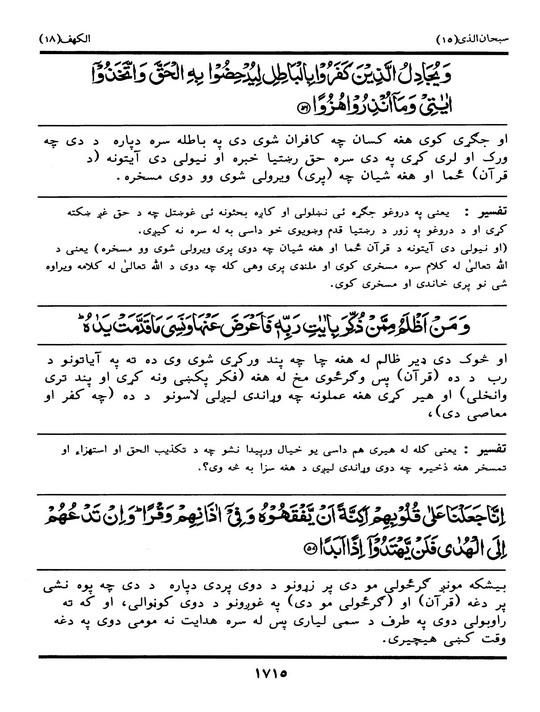 سبحان الذی (۱۵) الکهف (۱۸)
وَيُجَادِلُ الَّذِيْنَ كَفَرُوْا بِالْبَاطِلِ لِيُدْحِضُوْا بِهِ الْحَقَّ وَاتَّخَذُوْٓا
اٰيٰتِيْ وَمَآ اُنْذِرُوْا هُزُوًا ﴿۵۶﴾
او جګړی کوی هغه کسان چه کافران شوی دی په باطله سره دپاره د دی چه
ورک او لری کړی په دی سره حق رښتیا خبره او نیولی دی آیتونه (د
قرآن) ځما او هغه شیان چه (پری) ویرولی شوی وو دوی مسخره.
تفسیر : یعنی په دروغو جګړه ئی نښلولی او کاږه بحثونه ئی غوښتل چه د حق غږ ښکته
کړی او د دروغو په زور د رښتیا قدم وښویوی خو داسی به له سره نه کیږی.
(او نیولی دی آیتونه د قرآن ځما او هغه شیان چه دوی پری ویرولی شوی وو مسخره) یعنی د
الله تعالیٰ له کلام سره مسخری کوی او ملنډی پری وهی کله چه دوی د الله تعالیٰ له کلامه ویراوه
شی نو پری خاندی او مسخری کوی.
وَمَنْ اَظْلَمُ مِمَّنْ ذُكِّرَ بِاٰيٰتِ رَبِّهٖ فَاَعْرَضَ عَنْهَا وَنَسِيَ مَا قَدَّمَتْ يَدٰهُ ؕ
او څوک دی ډیر ظالم له هغه چا چه پند ورکړی شوی وی ده ته په آیاتونو د
رب د ده (قرآن) پس وګرځوی مخ له هغه (فکر پکښی ونه کړی او پند تری
وانخلی) او هیر کړی هغه عملونه چه وړاندی لیږلی لاسونو د ده (چه کفر او
معاصی دی)،
تفسیر : یعنی کله له هیری هم داسی یو خیال ورپیدا نشو چه د تکذیب الحق او استهزاء او
تمسخر هغه ذخیره چه دوی وړاندی لیږی د هغه سزا به څه وی؟.
اِنَّا جَعَلْنَا عَلٰى قُلُوْبِهِمْ اَكِنَّةً اَنْ يَّفْقَهُوْهُ وَفِيْٓ اٰذَانِهِمْ وَقْرًا ؕ وَاِنْ تَدْعُهُمْ
اِلَى الْهُدٰى فَلَنْ يَّهْتَدُوْٓا اِذًا اَبَدًا ﴿۵۷﴾
بیشکه مونږ ګرځولی مو دی پر زړونو د دوی پردی دپاره د دی چه پوه نشی
پر دغه (قرآن) او (ګرځولی مو دی) په غوږونو د دوی کوڼوالی، او که ته
راوبولی دوی په طرف د سمی لیاری پس له سره هدایت نه مومی دوی په دغه
وقت کښی هیچیری.
۱۷۱۵